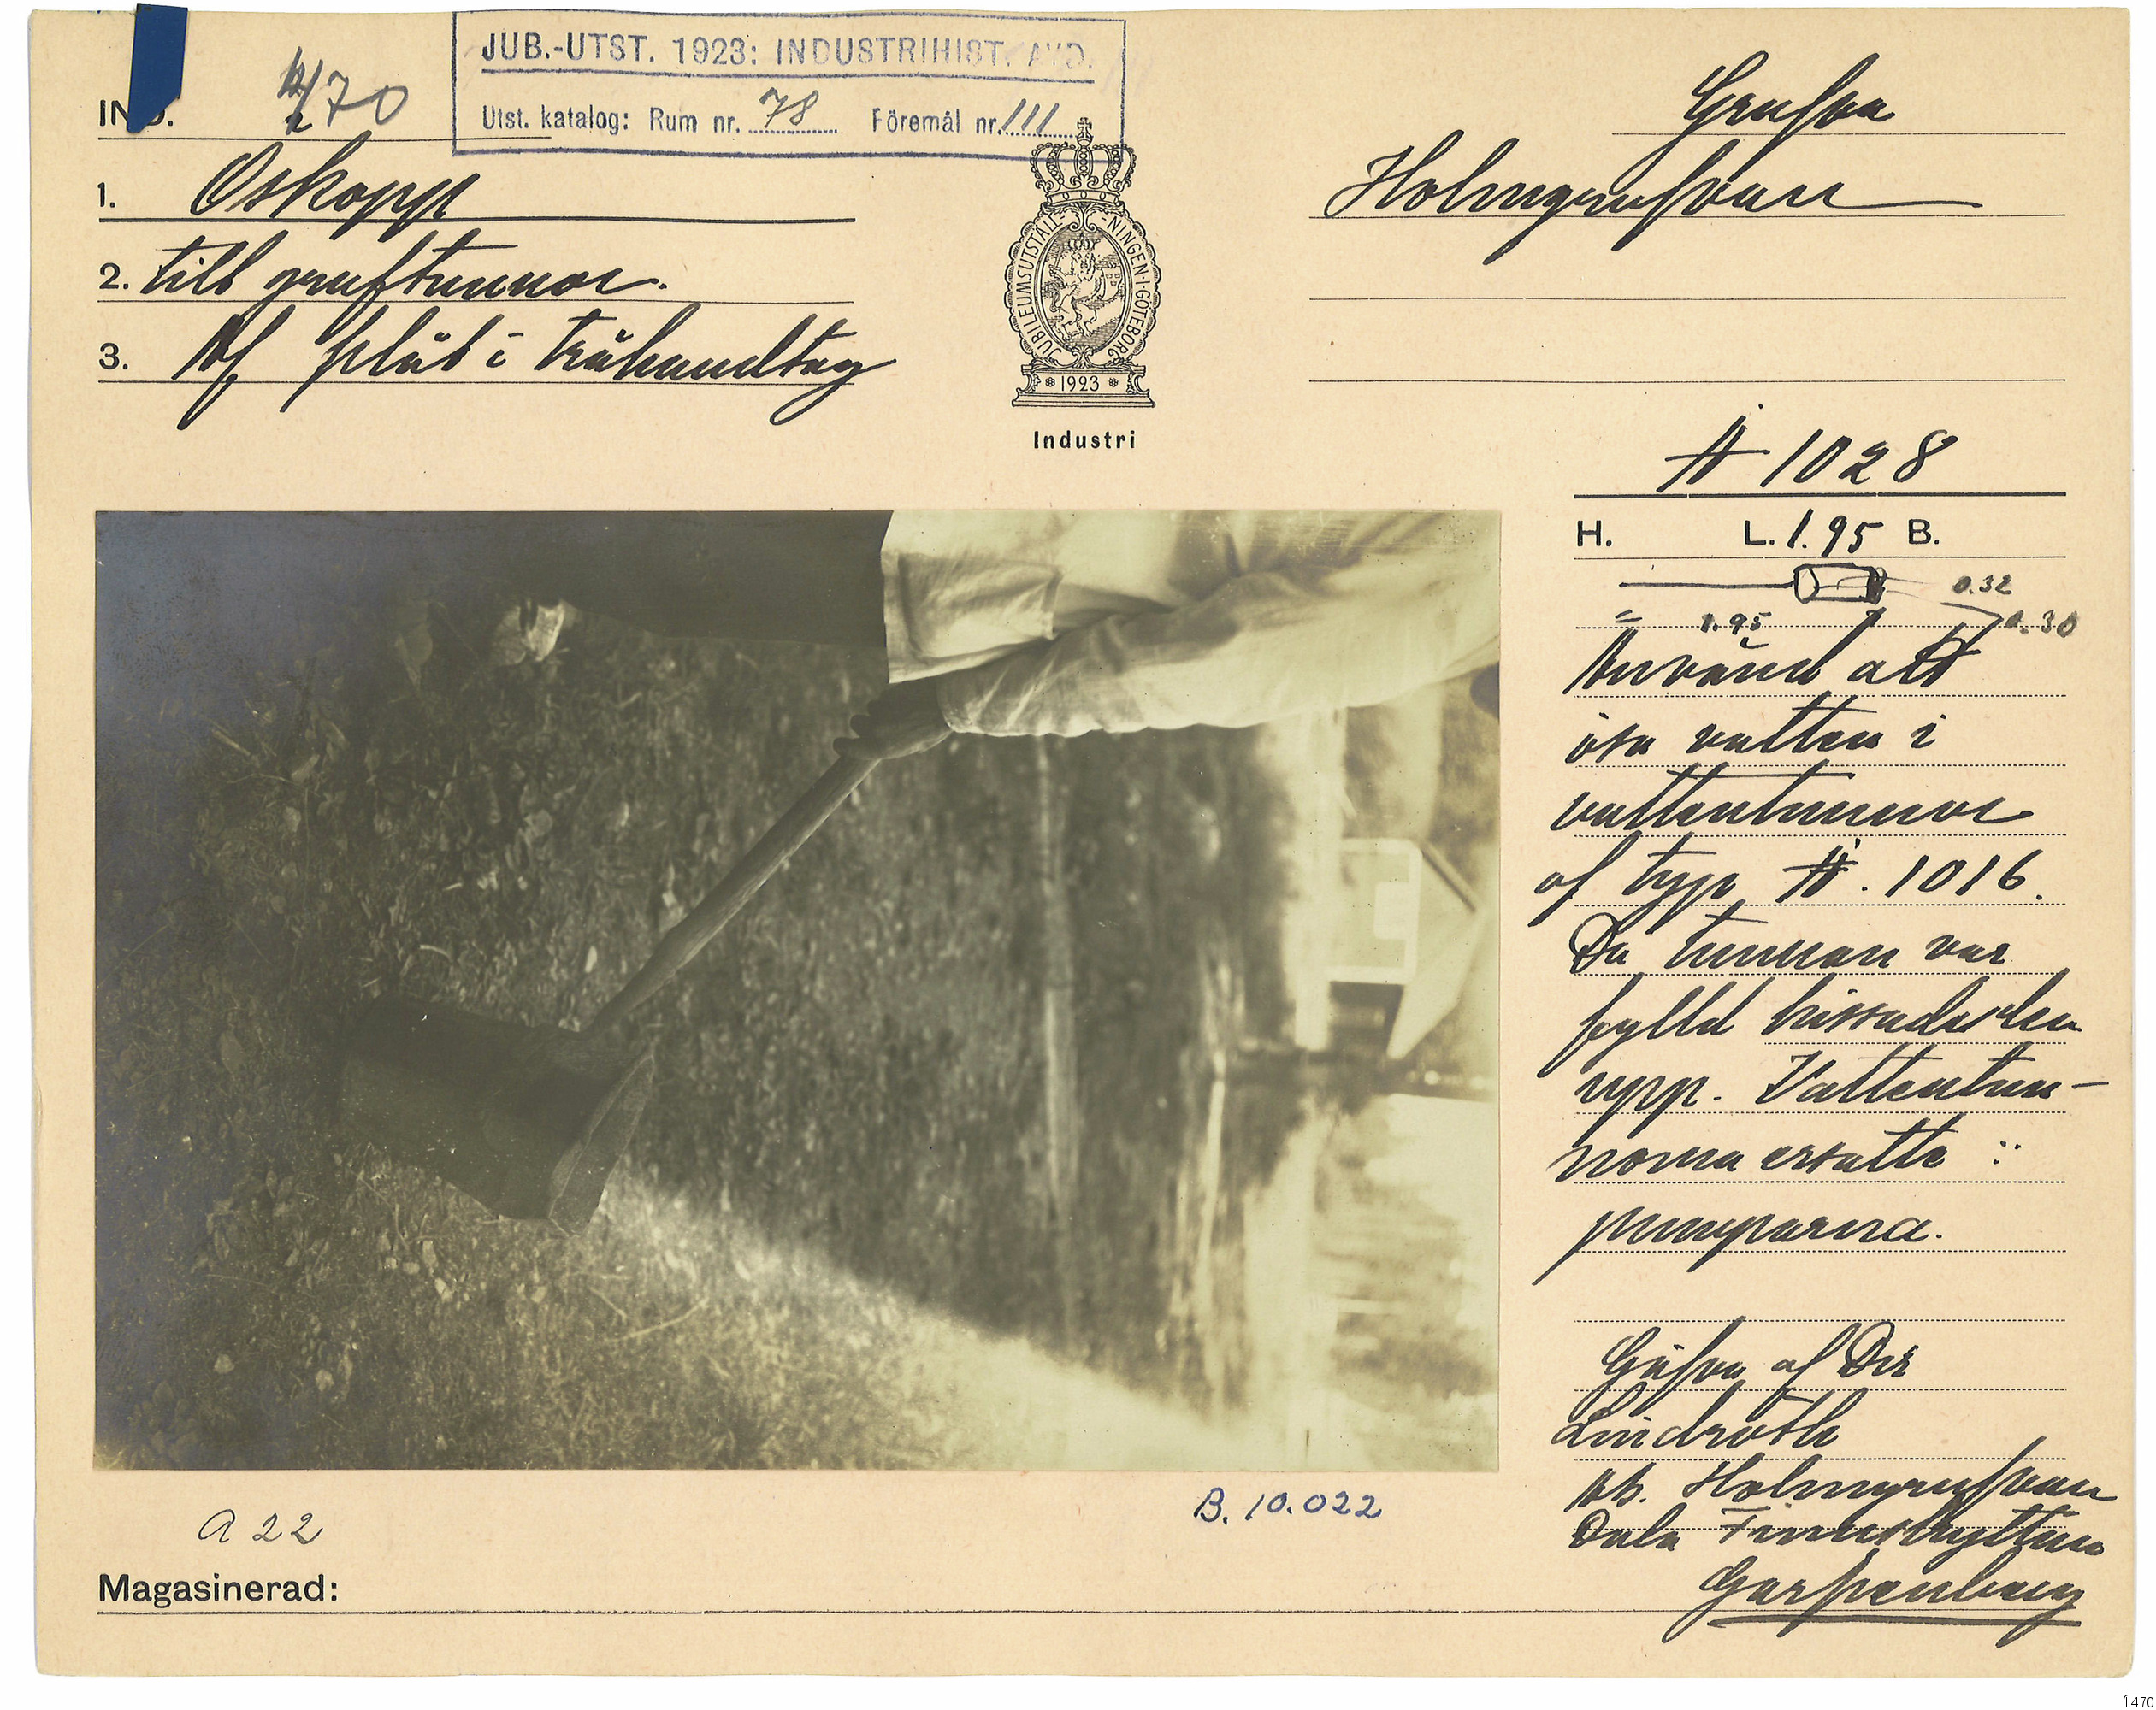 JUB.-UTST. 1923: INDUSTRIHIST. AVD.
Utst. katalog: Rum nr. 78 Föremål nr. 111
IND. 470
1. Öskopp
2. till gruftunnor.
3. Af plåt i trähandtag
JUBILEUMSUTSTÄLLNINGEN·I·GÖTEBORG
1923
Industri
Grufva
Holmgrufvan
Å 1028
H. L. 1.95 B.
0.32
1.95 0.30
Använd att
ösa vatten i
vattentunnor
af typ Å. 1016.
Då tunnan var
fylld hissades den
upp. Vattentun-
norna ersatte
pumparna.
Gåfva af Dir
Lindroth
Ab. Holmgrufvan
Dala Finnshyttan
Garpenberg
A 22
B. 10.022
Magasinerad:
I:470